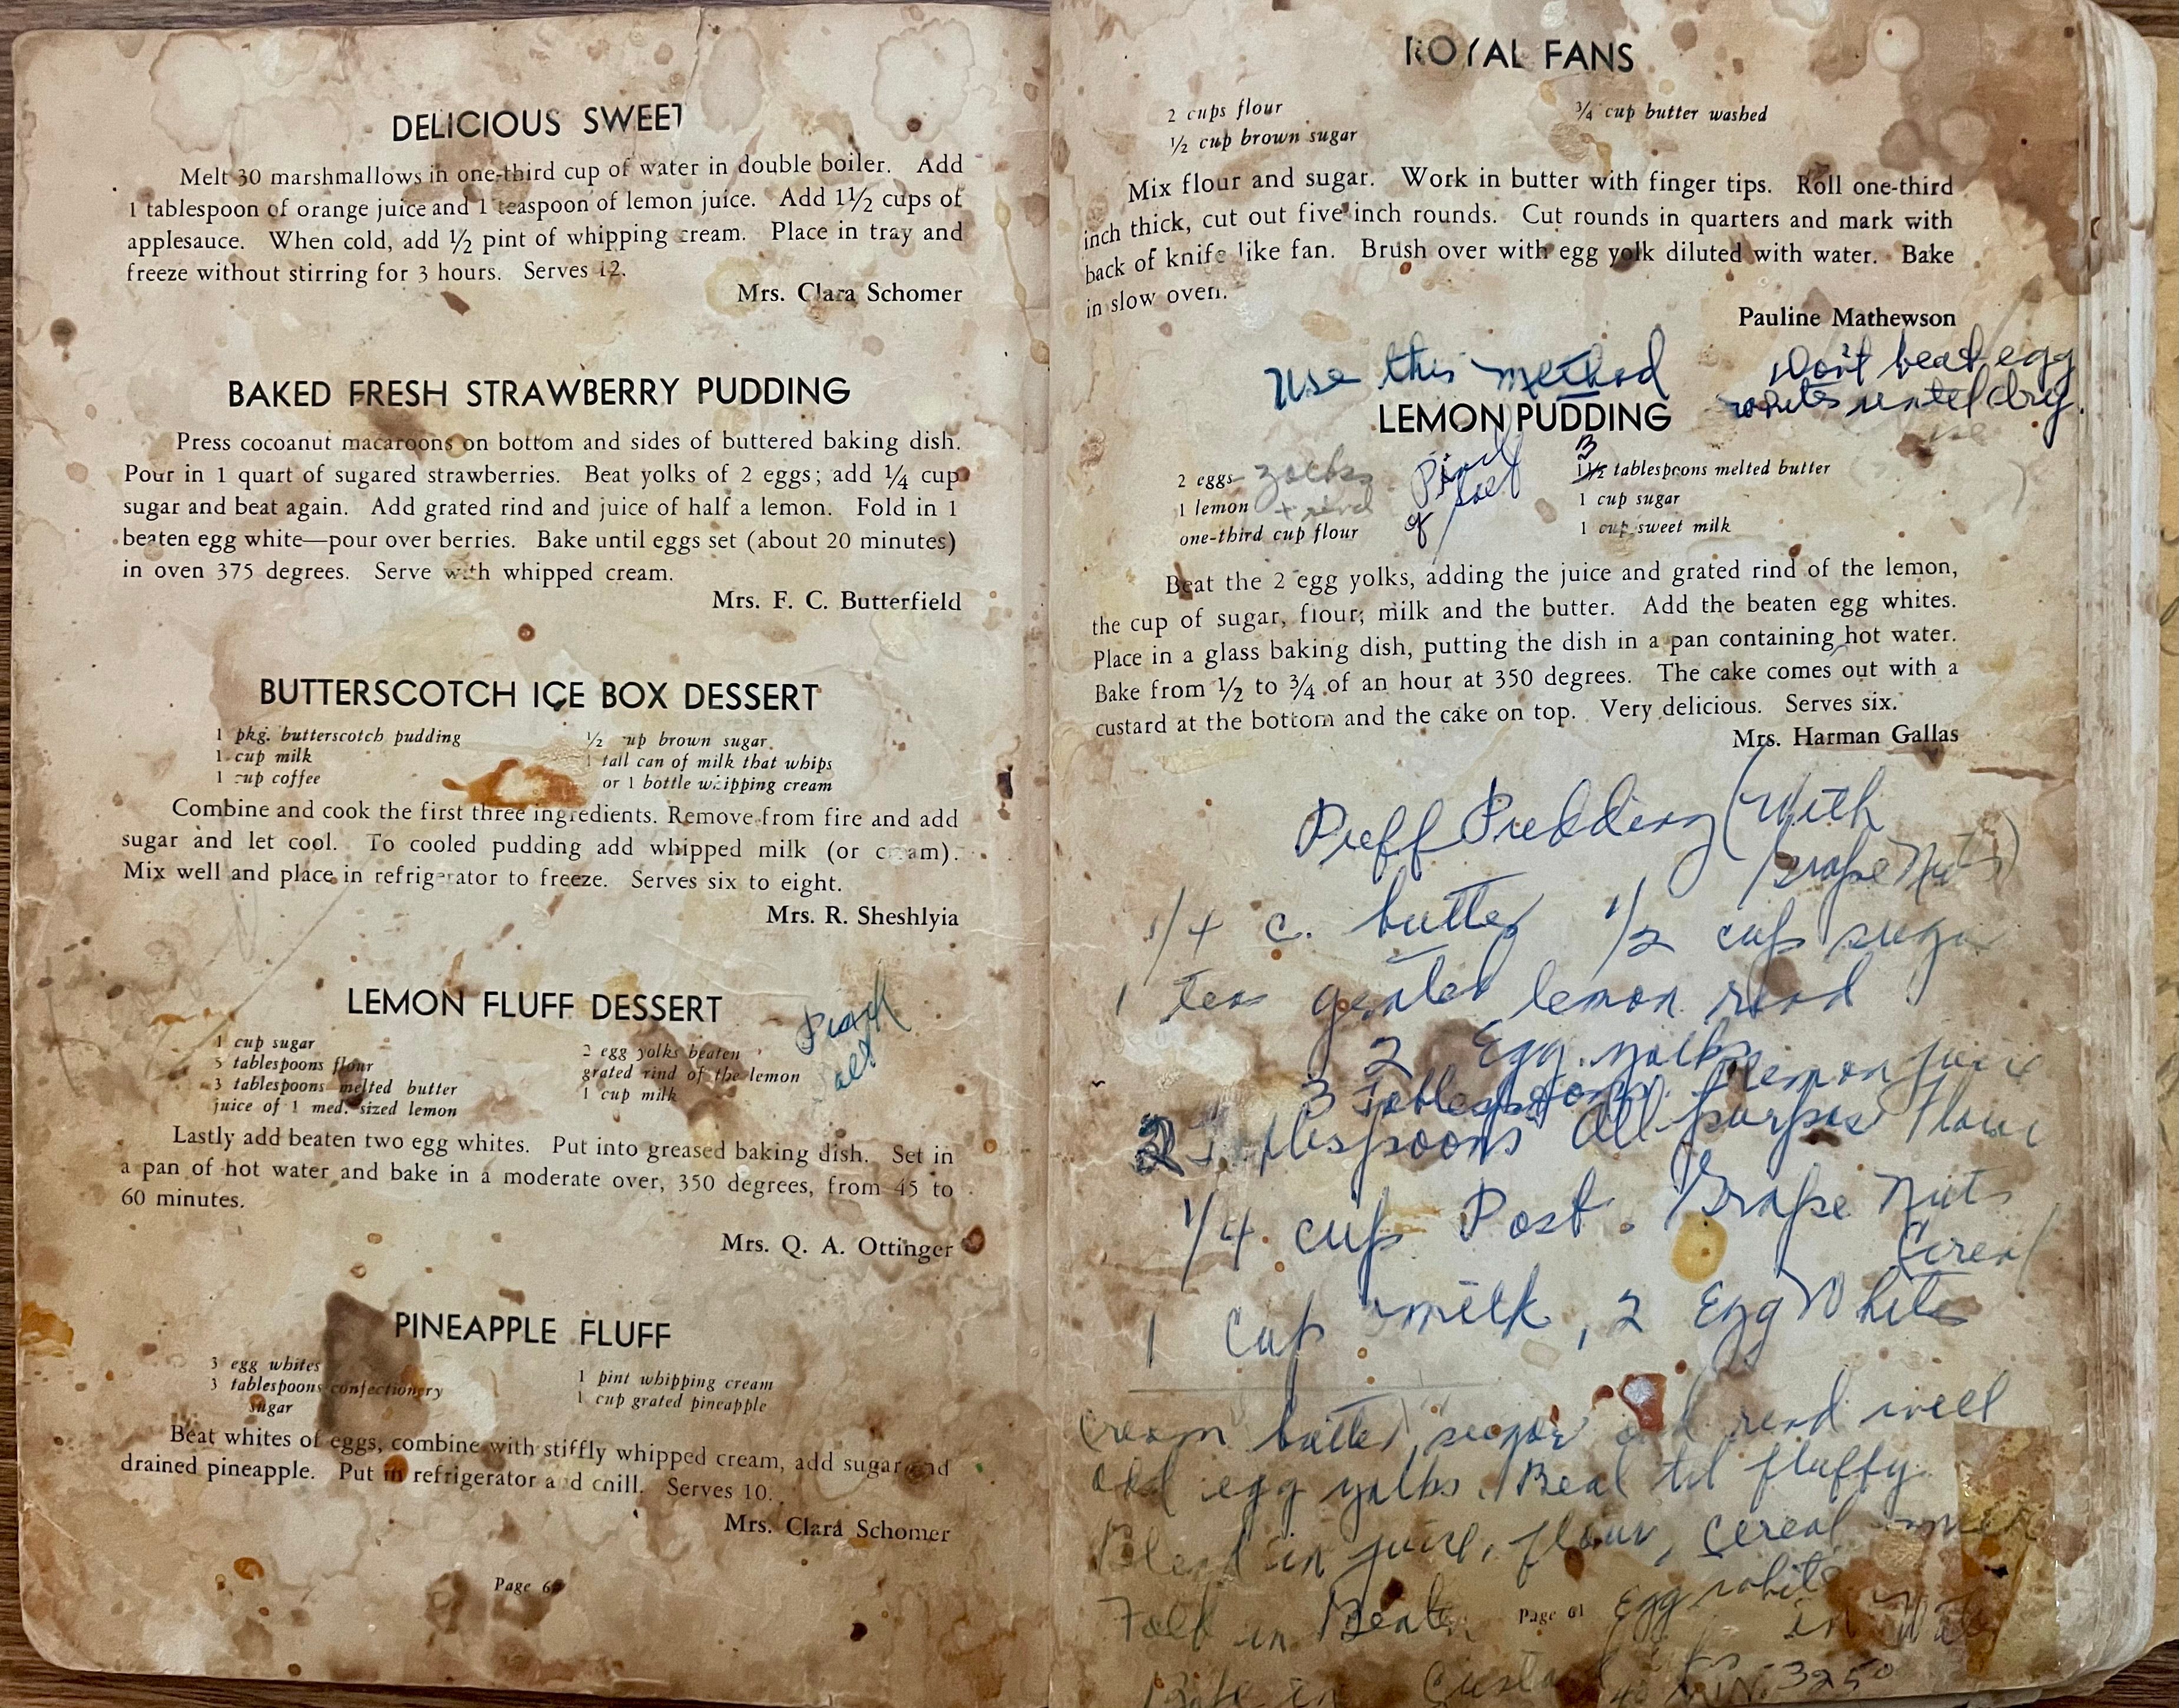 DELICIOUS SWEET
Melt 30 marshmallows in one-third cup of water in double boiler. Add
1 tablespoon of orange juice and 1 teaspoon of lemon juice. Add 1½ cups of
applesauce. When cold, add ½ pint of whipping cream. Place in tray and
freeze without stirring for 3 hours. Serves 12.
Mrs. Clara Schomer
BAKED FRESH STRAWBERRY PUDDING
Press cocoanut macaroons on bottom and sides of buttered baking dish.
Pour in 1 quart of sugared strawberries. Beat yolks of 2 eggs; add ¼ cup
sugar and beat again. Add grated rind and juice of half a lemon. Fold in 1
beaten egg white—pour over berries. Bake until eggs set (about 20 minutes)
in oven 375 degrees. Serve with whipped cream.
Mrs. F. C. Butterfield
BUTTERSCOTCH ICE BOX DESSERT
1 pkg. butterscotch pudding
1 cup milk
1 cup coffee
½ cup brown sugar
1 tall can of milk that whips
or 1 bottle whipping cream
Combine and cook the first three ingredients. Remove from fire and add
sugar and let cool. To cooled pudding add whipped milk (or cream).
Mix well and place in refrigerator to freeze. Serves six to eight.
Mrs. R. Sheshlyia
LEMON FLUFF DESSERT
1 cup sugar
5 tablespoons flour
3 tablespoons melted butter
juice of 1 med. sized lemon
2 egg yolks beaten
grated rind of the lemon
1 cup milk
Pinch
salt
Lastly add beaten two egg whites. Put into greased baking dish. Set in
a pan of hot water and bake in a moderate over, 350 degrees, from 45 to
60 minutes.
Mrs. Q. A. Ottinger
PINEAPPLE FLUFF
3 egg whites
3 tablespoons confectionery
sugar
1 pint whipping cream
1 cup grated pineapple
Beat whites of eggs, combine with stiffly whipped cream, add sugar and
drained pineapple. Put in refrigerator and chill. Serves 10.
Mrs. Clara Schomer
Page
ROYAL FANS
2 cups flour
½ cup brown sugar
¾ cup butter washed
Mix flour and sugar. Work in butter with finger tips. Roll one-third
inch thick, cut out five inch rounds. Cut rounds in quarters and mark with
back of knife like fan. Brush over with egg yolk diluted with water. Bake
in slow oven.
Pauline Mathewson
Use this method
Don't beat egg
whites until dry.
LEMON PUDDING
2 eggs yolks
1 lemon + rind
one-third cup flour
Pinch
of salt
3
1½ tablespoons melted butter
1 cup sugar
1 cup sweet milk
Beat the 2 egg yolks, adding the juice and grated rind of the lemon,
the cup of sugar, flour; milk and the butter. Add the beaten egg whites.
Place in a glass baking dish, putting the dish in a pan containing hot water.
Bake from ½ to ¾ of an hour at 350 degrees. The cake comes out with a
custard at the bottom and the cake on top. Very delicious. Serves six.
Mrs. Harman Gallas
Puff Pudding (with
Grape Nuts)
1/4 c. butter 1/2 cup sugar
1 teas grated lemon rind
2 Egg yolks
3 Tablespoons lemon juice
2 Tablespoons All purpose Flour
1/4 cup Post Grape Nuts
Cereal
1 Cup milk, 2 Egg Whites
Cream butter, sugar and rind well
add egg yolks. Beat til fluffy
Blend in juice, flour, cereal
Fold in Beaten Egg whites
Page 61
Bake in Custard in Water
40 MIN. 325°